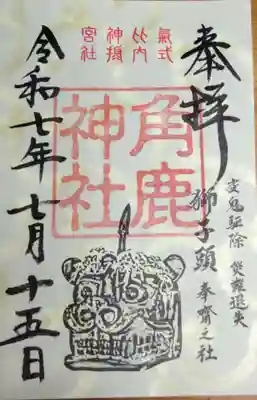 奉拝
鬼駆除 災難退失
獅子頭 奉齋之社
氣比神宮
式内摂社
角鹿
神社
令和七年七月十五日